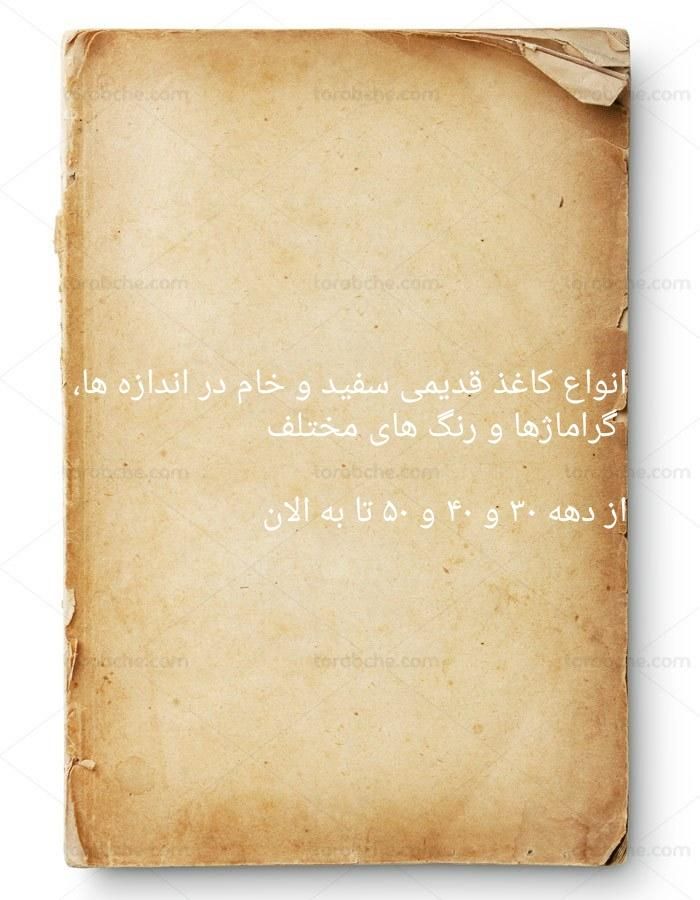 انواع کاغذ قدیمی سفید و خام در اندازه ها،
گراماژها و رنگ های مختلف
از دهه ۳۰ و ۴۰ و ۵۰ تا به الان
torobche.com torobche.com torobche.com
torobche.com torobche.com torobche.com
torobche.com torobche.com torobche.com
torobche.com torobche.com torobche.com
torobche.com torobche.com torobche.com